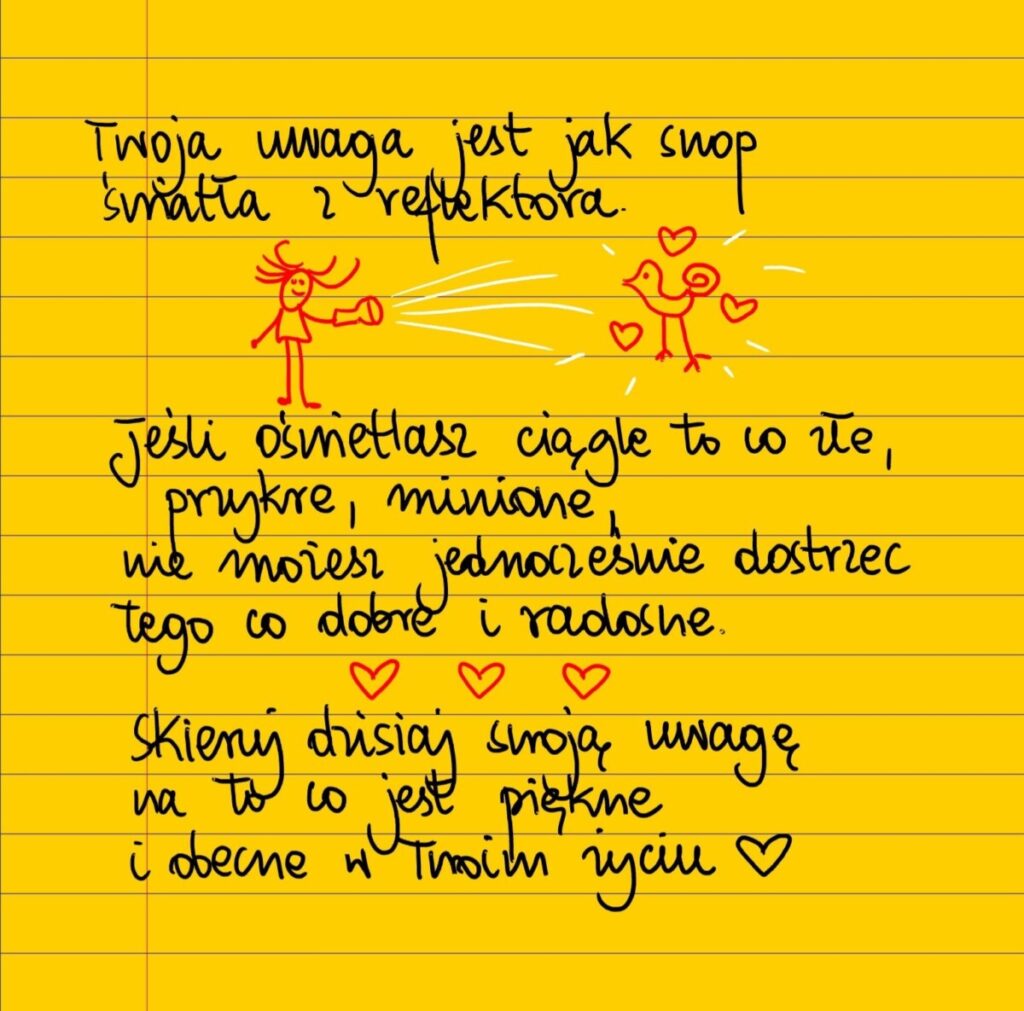 Twoja uwaga jest jak snop
światła z reflektora.
Jeśli oświetlasz ciągle to co złe,
przykre, minione,
nie możesz jednocześnie dostrzec
tego co dobre i radosne.
Skieruj dzisiaj swoją uwagę
na to co jest piękne
i obecne w Twoim życiu